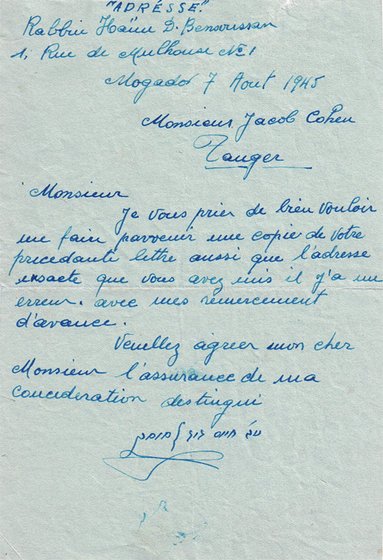 "ADRÉSSE"
Rabbin Haïm D. Bensoussan
1, Rue de Mulhouse No 1
Mogador 7 Aout 1945
Monsieur Jacob Cohen
Tanger
Monsieur
Je vous prier de bien vouloir
me fair parvenir une copie de votre
precedante lettre aussi que l'adresse
exsacte que vous avez mis il y'a un
erreur. avec mes remerciment
d'avance.
Veuellez agreer mon cher
Monsieur l'assurance de ma
concideration destingui
חיים דוד